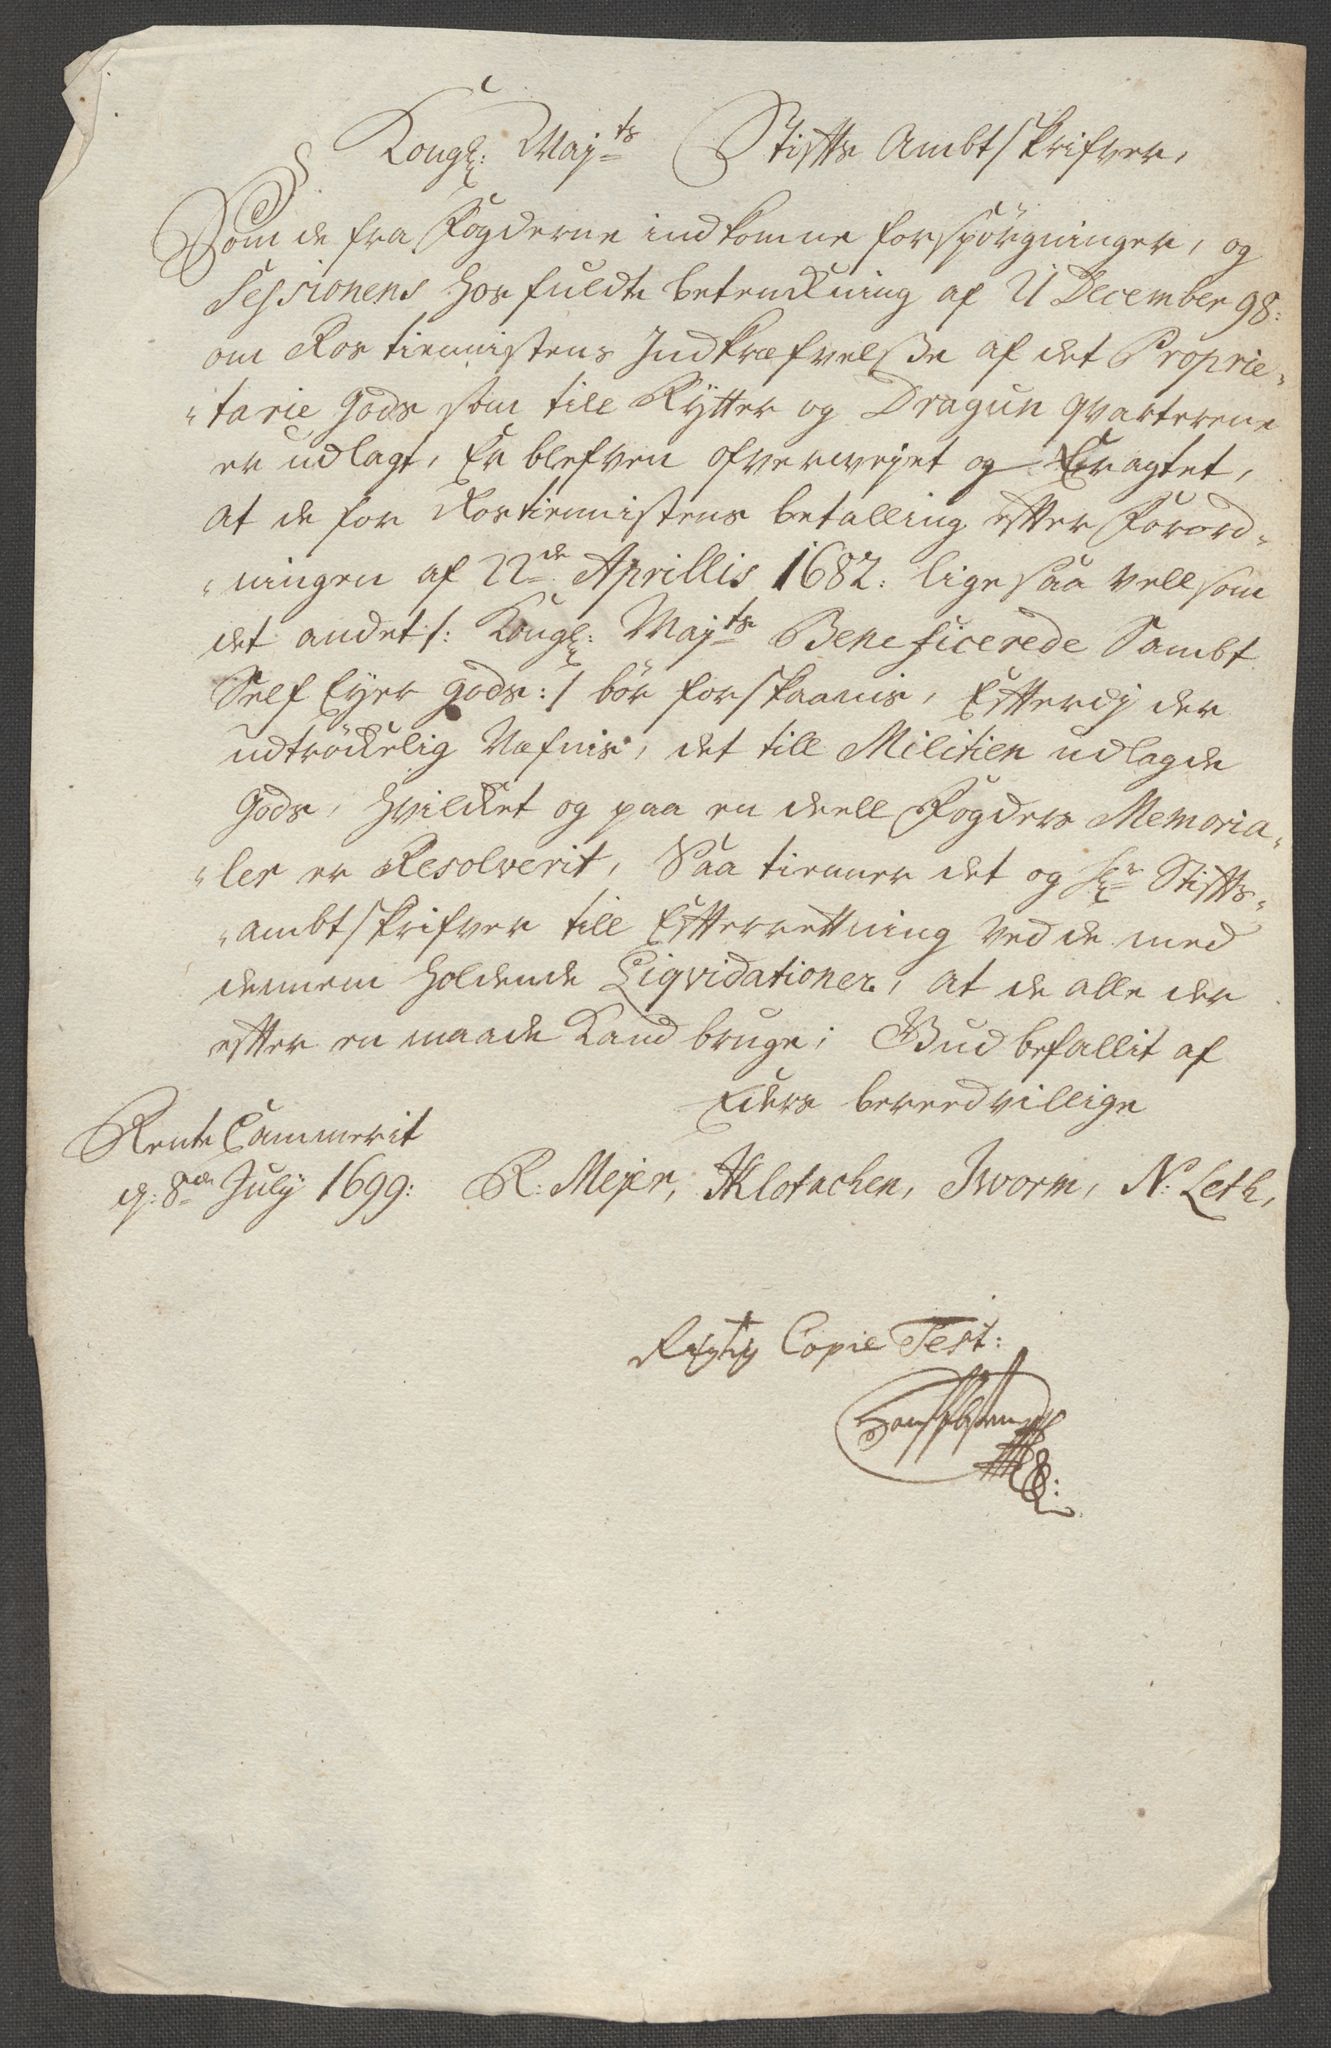 Kongl: Maj.ts Stifts Ambtskrifver,
Som de fra Fogderne indkomne forspörgninger, og
Sessionens hosfuldte betenckning af 21 December 98:
om Rostienistens Indkræfvelsße af det Proprie-
-tarie gods som till Rÿtter og Dragun qvarterene
er udlagt, Er blefven ofverveyet og Eragtet,
at de for Rostienistens betalling efter Forord-
-ningen af 22de Aprillis 1682. lige saa vell som
det andet /: Kongl: Maj.ts Beneficerede Sambt
Self Eyer gods :/ bör forskaanis, Efterdj der
udtröckelig Næfnis, det till Militien udlagde
gods, hvilcket og paa en deell Fogders Memoria-
-ler er Resolverit, Saa tienner det og hr Stifts-
-ambtskrifver till Efterrettning ved de med
dennem holdende Liqvidationer, at de alle der
efter en maade kand bruge; Gud befallit af
Eders bereedvillige
Rente Cammerit
d: 8de Julÿ 1699: R: Mejer, HKlotachen, Jworm, N: Leth,
Rigtig Copie Test: